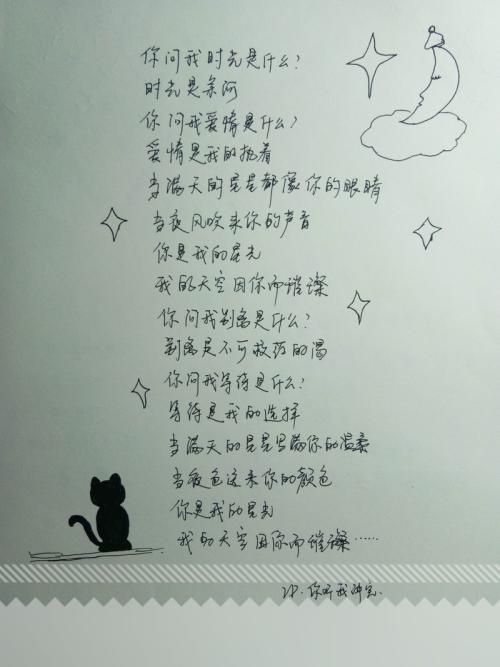 你问我时光是什么?
时光是条河
你问我爱情是什么?
爱情是我的执着
当满天的星星都像你的眼睛
当夜风吹来你的声音
你是我的星光
我的天空因你而璀璨
你问我别离是什么?
别离是不可救药的渴
你问我等待是什么?
等待是我的选择
当满天的星星写满你的温柔
当夜色送来你的颜色
你是我的星光
我的天空因你而璀璨……
你听我